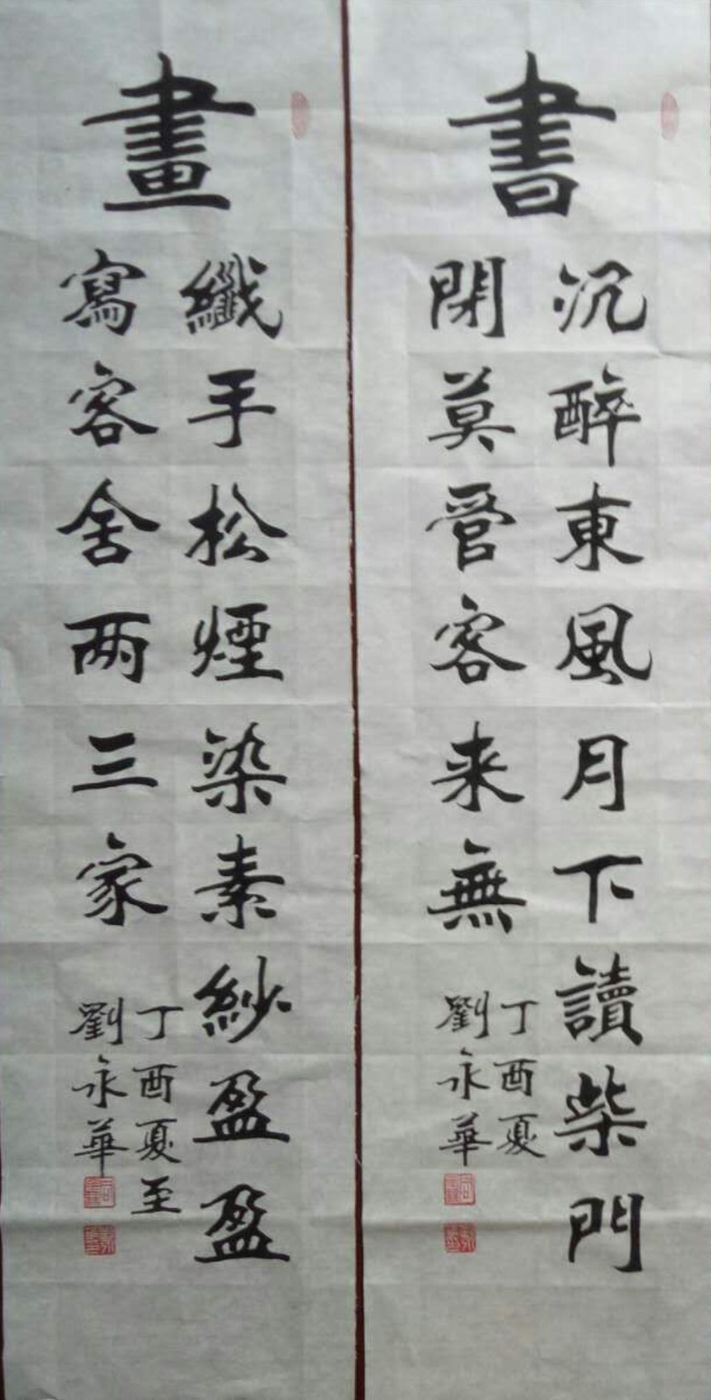 書
沉醉東風月下讀柴門
閉莫管客来無
丁酉夏
劉永華
畫
纖手松煙染素紗盈盈
寫客舍两三家
丁酉夏至
劉永華